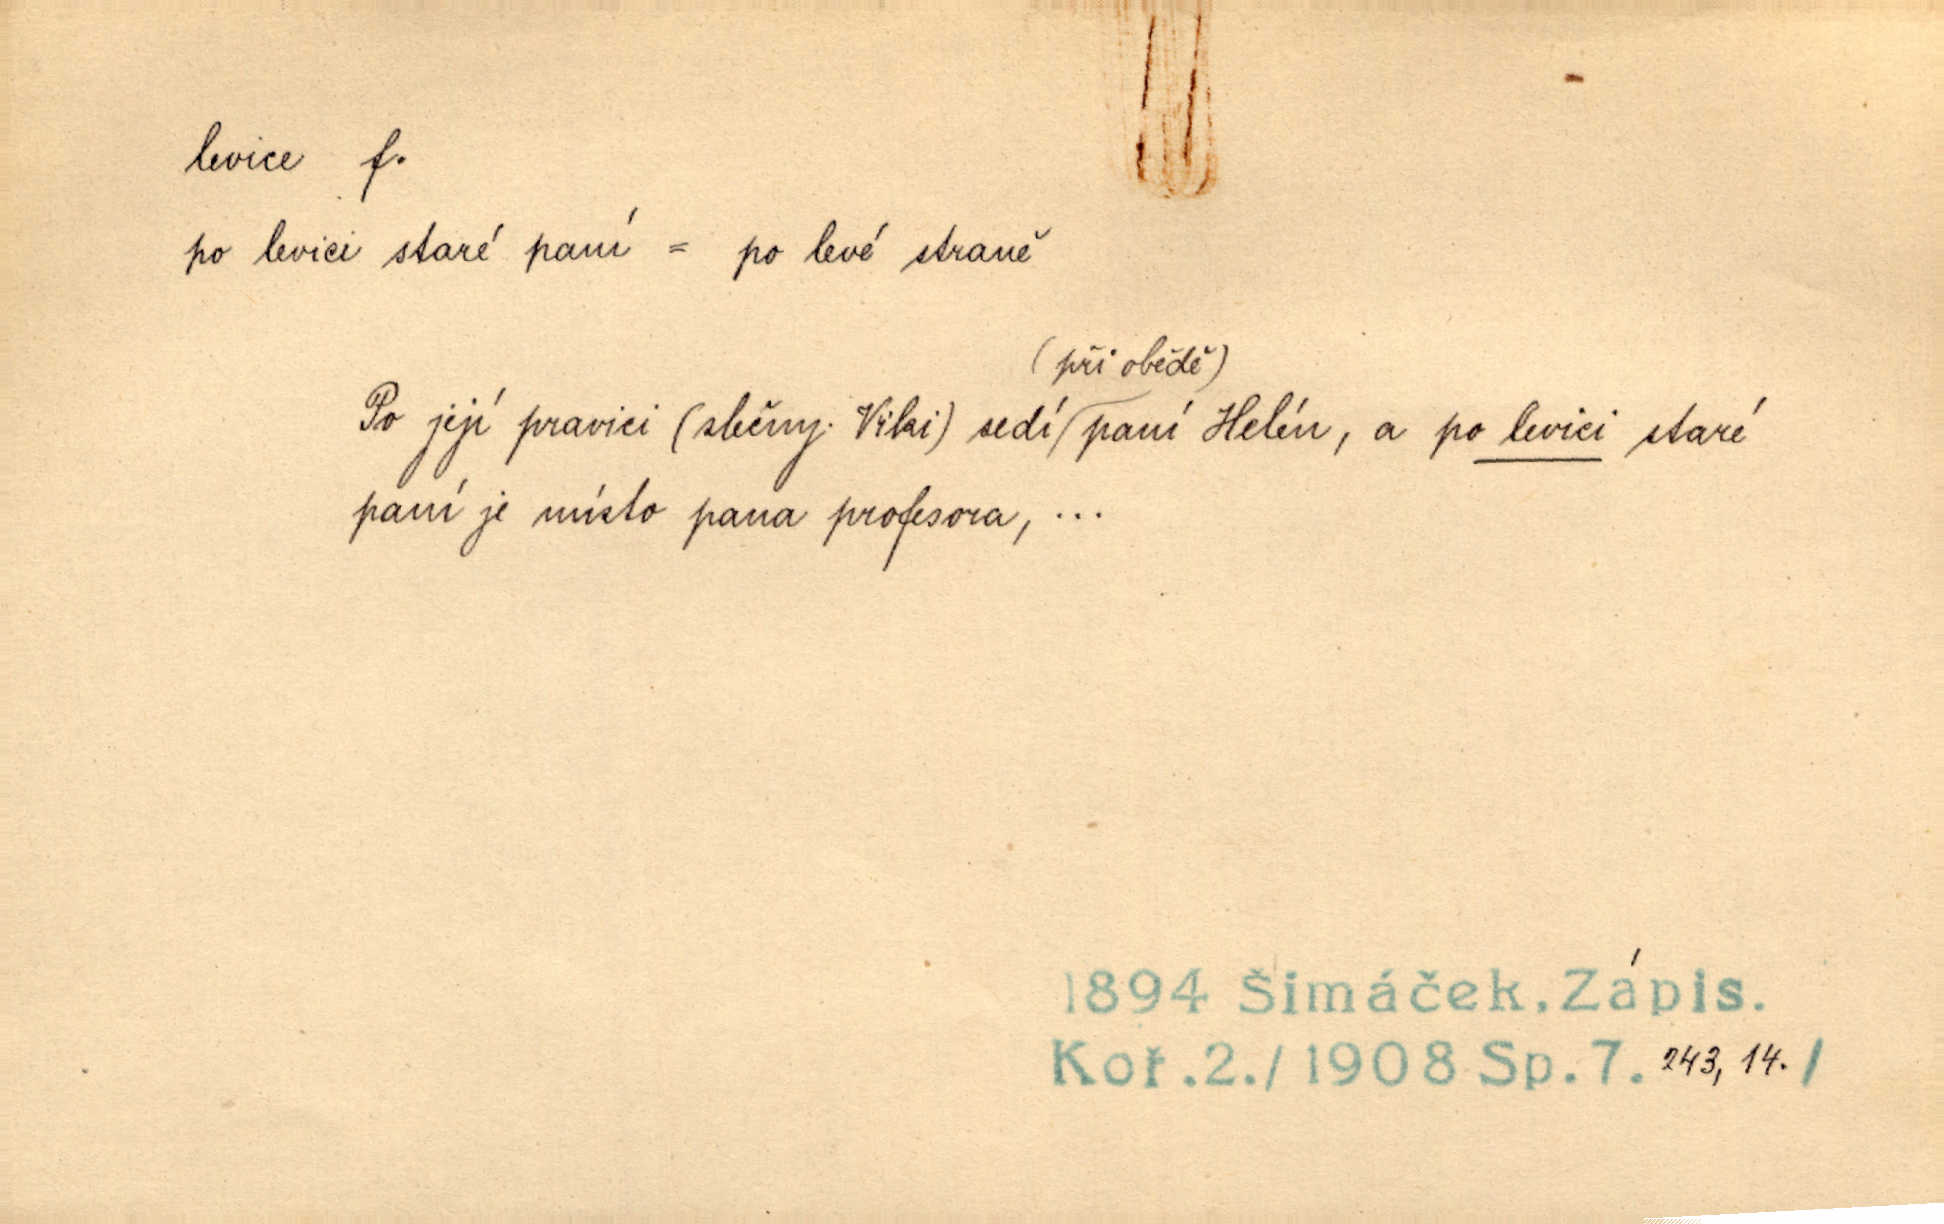 levice f.
po levici staré paní = po levé straně
(při obědě)
Po její pravici (slečny Viki) sedí paní Helén, a po levici staré
paní je místo pana profesora, ...
1894 Šimáček, Zápis.
Koř. 2./1908 Sp. 7. 243, 14. /